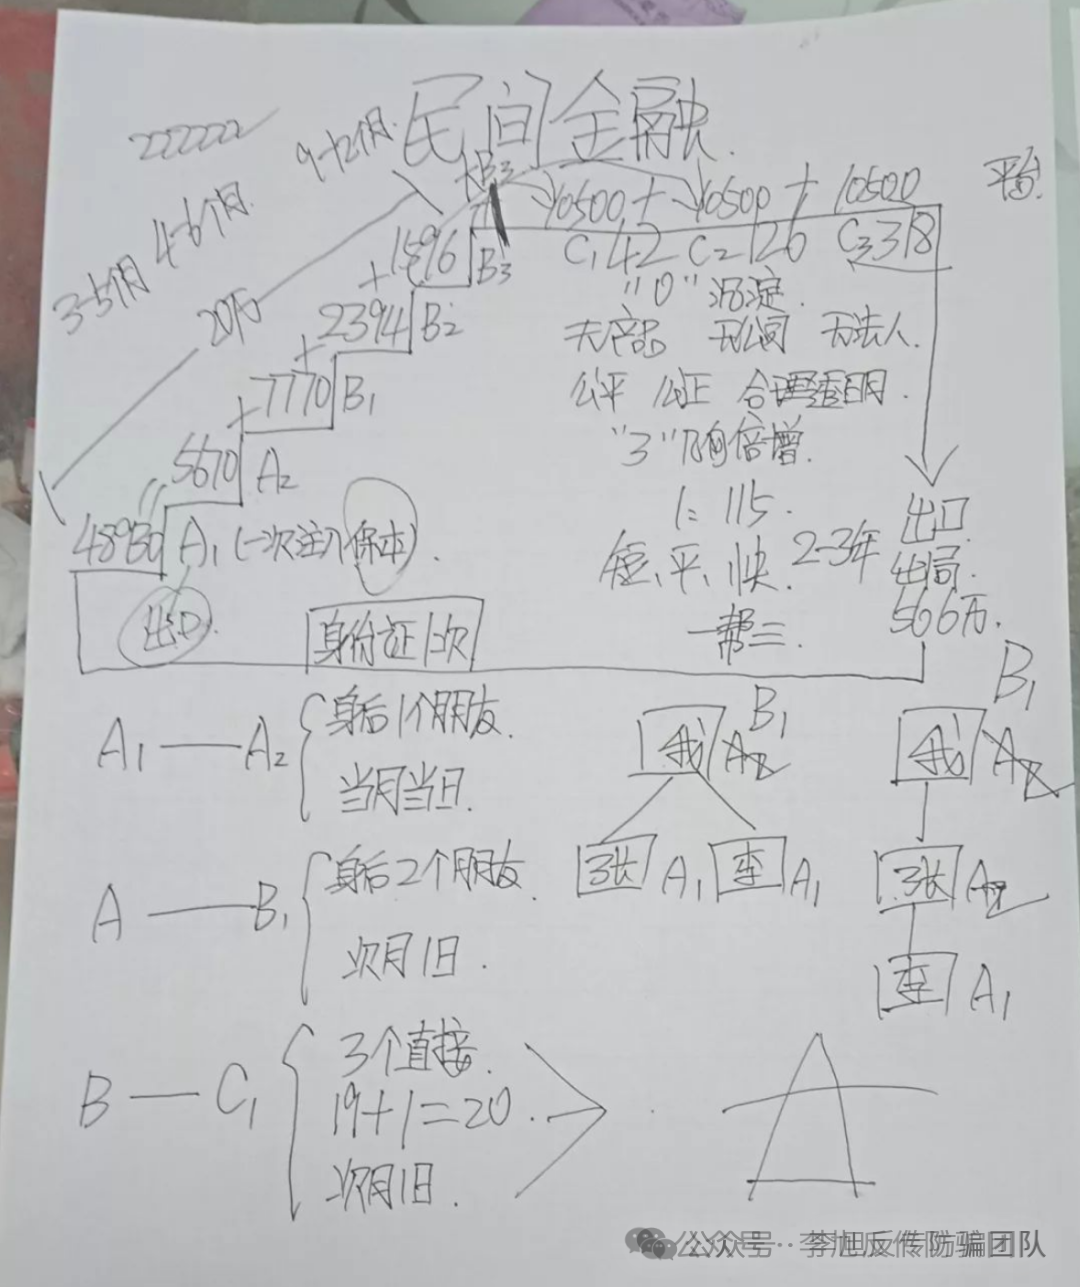 民间金融.
222222
9-12个月.
4-6个月.
3-5个月
20万
B3
10500+ 10500 + 10500
平台.
+1596 B3
C1 42 C2 126 C3 318
"0"沉淀.
+2394 B2
无产品 无公司 无法人.
+7770 B1
公平 公正 合理透明.
"3"几何倍增.
5670 A2
1:115.
出口
48980 A1(一次注入保本).
短、平、快. 2-3年
出局.
出口.
566万.
身份证1次
一帮三.
A1——A2
身后1个朋友.
当月当日.
我 A2 B1
张 A1 李 A1
我 A2 B1
张 A2
李 A1
A——B1
身后2个朋友.
次月1日.
B——C1
3个直接.
19+1=20.
次月1日.
公众号·李旭反传防骗团队